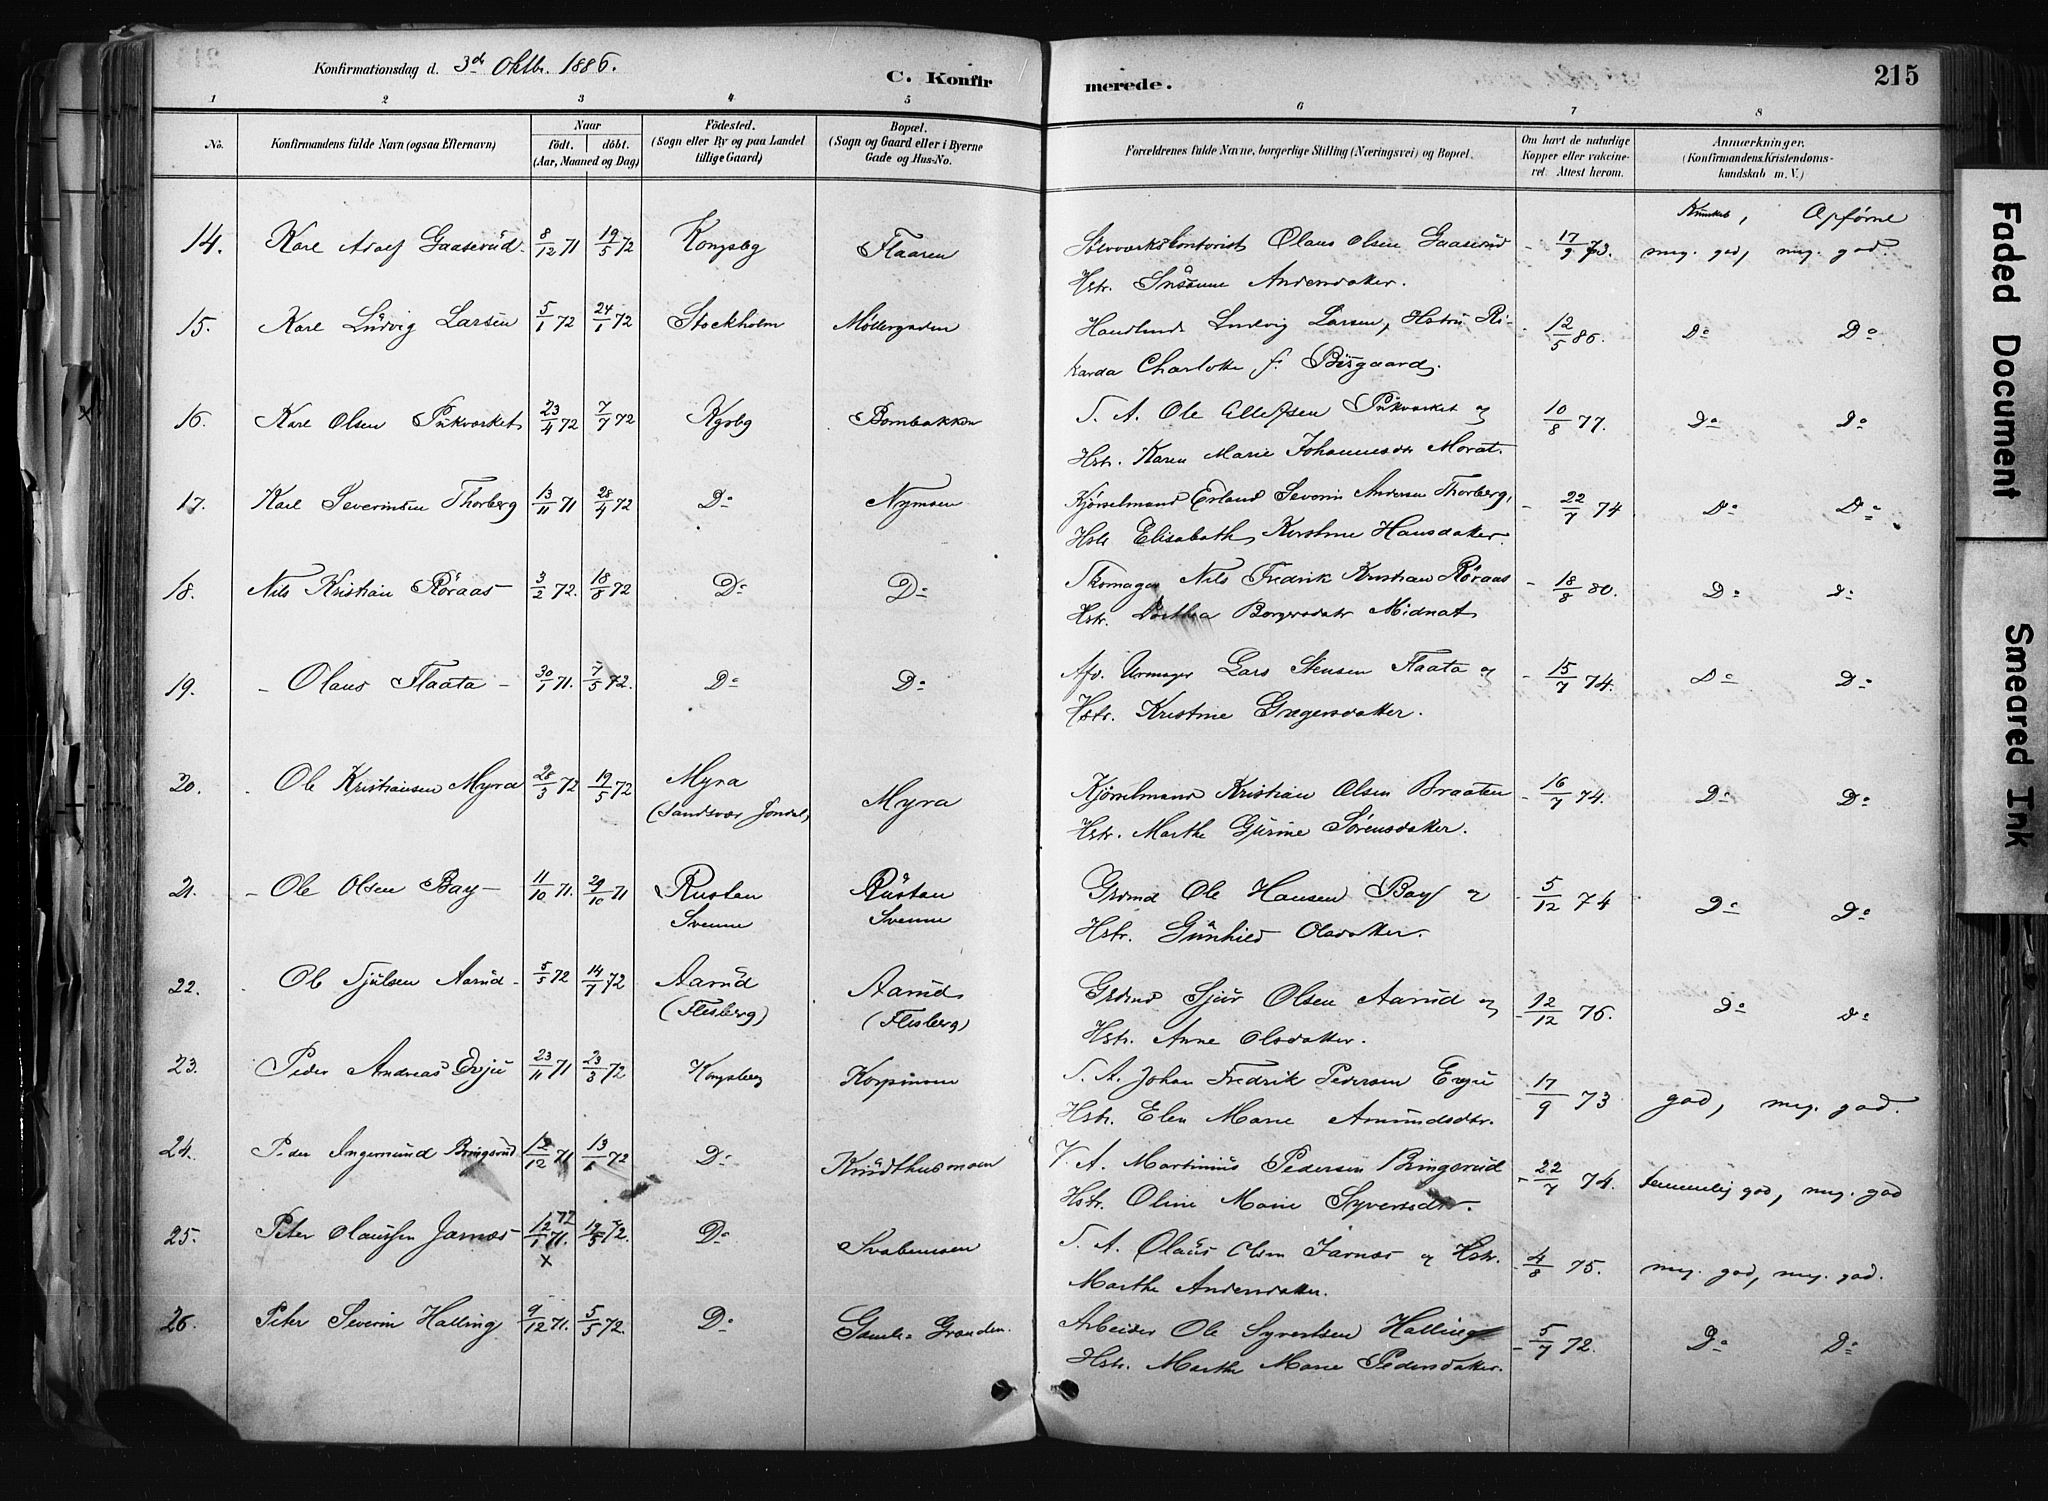 Konfirmationsdag d. 3d Oktbr. 1886.
C. Konfirmerede.
215
1 2 3 4 5 6 7 8
No.
Konfirmandens fulde Navn (ogsaa Efternavn)
Naar
födt. döbt.
(Aar, Maaned og Dag)
Födested.
(Sogn eller By og paa Landet
tillige Gaard)
Bopæl.
(Sogn og Gaard eller i Byerne
Gade og Hus-No.
Forældrenes fulde Navne, borgerlige Stilling (Næringsvei) og Bopæl.
Om havt de naturlige
Kopper eller vakcine-
ret. Attest herom.
Anmærkninger.
(Konfirmandens Kristendoms-
kundskab m. V.)
Kundskab, Opförsel
14. Karl Adolf Gaaserud 8/12 71 19/5 72 Kongsbg Flaaren Sölvværkskontorist Olaus Olsen Gaaserud - 17/9 73. meg. god, meg. god.
Hstr. Susanne Andersdatter.
15. Karl Ludvig Larsen 5/1 72 24/1 72 Stockholm Möllergaden Handlende Ludvig Larsen, Hstru Ri- - 12/5 86. Do Do
karda Charlotte f. Bisgaard.
16. Karl Olsen Pukværket 23/4 72 7/7 72 Kgsbg Bombakken S. A. Ole Ellefsen Pukværket og 10/8 77. Do Do
Hstr. Karen Marie Johannesdtr Morat.
17. Karl Severinsen Thorberg 13/11 71 28/4 72 Do Nymoen Kjörselmand Erland Severin Andersen Thorberg, - 22/7 74 Do Do
Hstr Elisabeth Kirstine Hansdatter.
18. Nils Kristian Röraas 3/2 72. 18/8 72 Do Do Skomager Nils Fredrik Kristian Röraas - 18/8 80. Do Do
Hstr. Dorthea Borgersdatr Midnat
19. - Olaus Flaata - 30/1 71. 7/5 72. Do Do Afd. Urmager Lars Stensen Flaata og - 15/7 74. Do Do
Hstr. Kristine Gregersdatter.
20. Ole Kristiansen Myra 28/3 72 19/5 72 Myra Myra Kjörselmand Kristian Olsen Braaten - 16/7 74. Do Do
(Sandsvær Jondal) Hstr. Marthe Gurine Sörensdatter.
21. - Ole Olsen Bay - 11/10 71. 29/10 71 Rustan Rustan Grdmd Ole Hansen Bay og - 5/12 74 Do Do
Svenne Svenne Hstr. Gunhild Olsdatter.
22. Ole Sjulsen Aarud - 5/5 72 14/7 72 Aarud Aarud Grdmd Sjur Olsen Aarud og - 12/12 76. Do Do
(Flesberg) (Flesberg) Hstr. Anne Olsdatter.
23. Peder Andreas Evju 23/11 71 23/3 72 Kongsberg Korpmoen S. A. Johan Fredrik Pedersen Evju - 17/9 73 god, meg. god.
Hstr. Elen Marie Amundsdtr.
24. Peder Ingemund Bringsrud 12/12 71 13/1 72 Do Knudthusmoen V. A. Martinius Pedersen Bringsrud - 22/7 74. temmelig god, meg. god
Hstr. Oline Marie Syversdtr.
25. Peter Olaussen Jarnæs 12/1 72 71. 19/5 72. Do Svabensen S. A. Olaus Olsen Jarnæs og Hstr. - 4/8 75. meg. god, meg. god.
x Marthe Andersdatter.
26. Peter Severin Halling 9/12 71. 5/5 72. Do Gamle Granden. Arbeider Ole Syvertsen Halling - 5/7 72. Do Do
Hstr. Marthe Marie Pedersdatter.
Faded Document
Smeared Ink